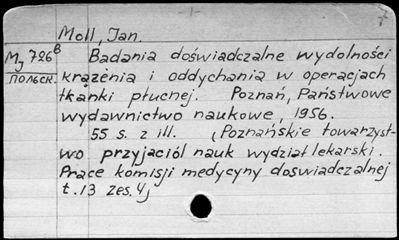 Moll, Jan.
Му 726в
польск.
Badania doświadczalne wydolności
krążenia i oddychania w operacjach
tkanki płucnej. Poznań, Państwowe
wydawnictwo naukowe, 1956.
55 s. z ill. (Poznańskie towarzyst-
wo przyjaciół nauk wydział lekarski.
Prace komisji medycyny doswiadczalnej
t. 13 zes. 4)